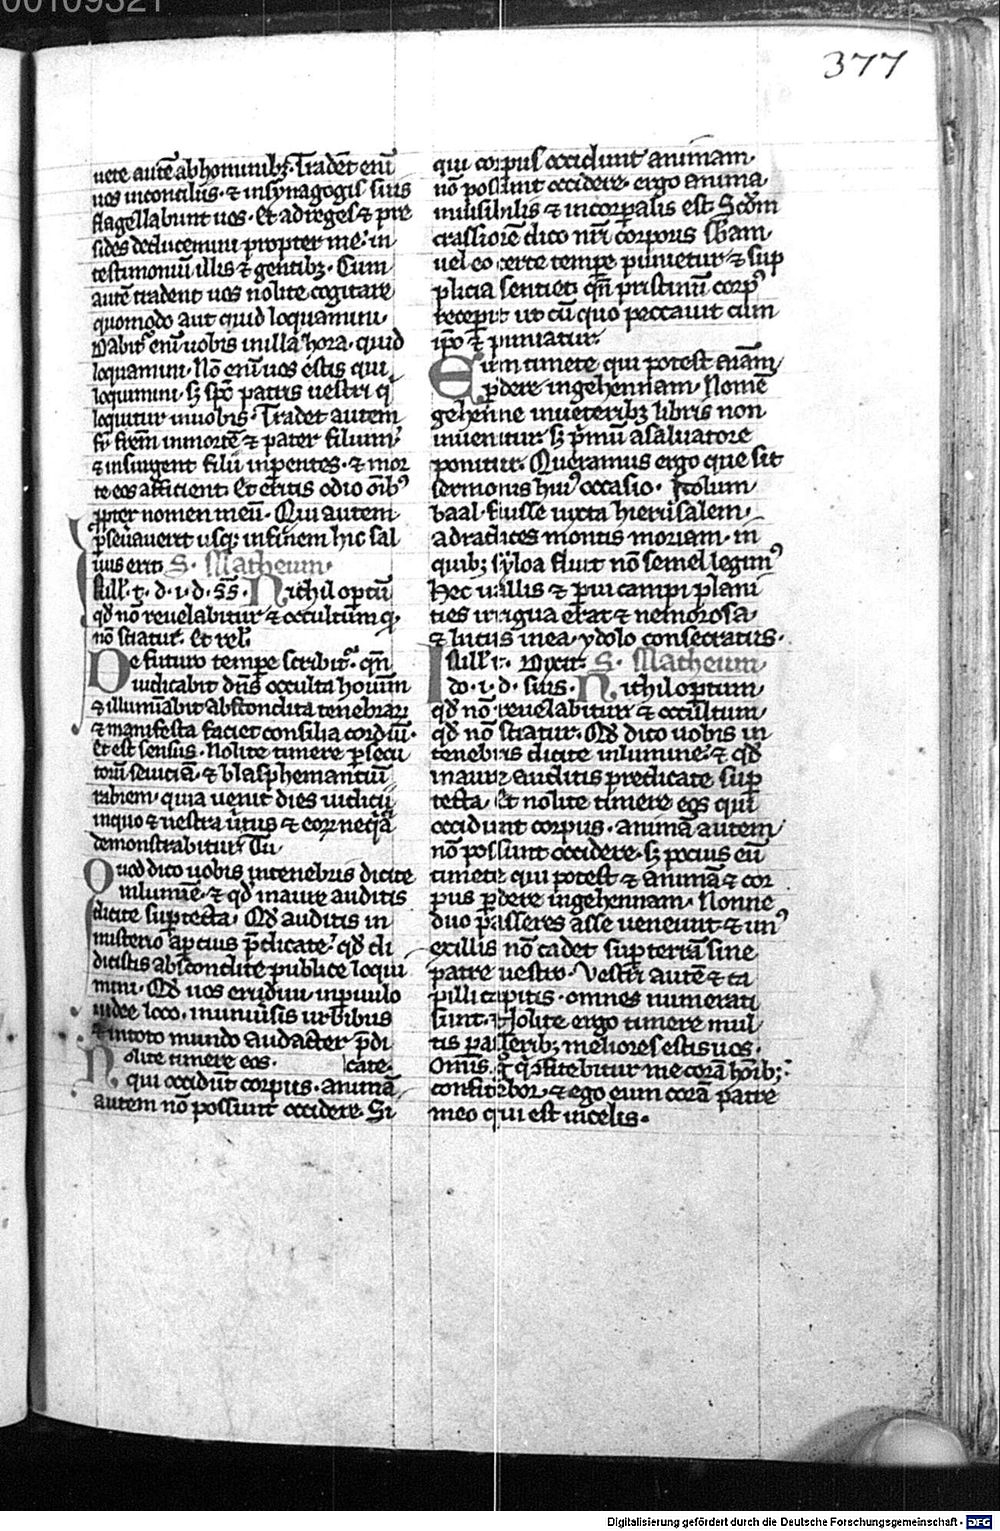 377
uete autē ab hominibꝫ. Tradēt eni͞
uos in conciliis. & in synagogis suis
flagellabunt uos. Et ad reges & pre
sides deducemini propter me. in
testimoniū illis & gentibꝫ. Cum
autē tradent uos nolite cogitare
quomodo aut quid loquamini.
Dabit᷑ enī uobis in illa hora. quid
loquamini. Nō enī uos estis qui
loquimini. sꝫ spc̄ patris uestri q̇
loquitur in uobis. Tradet autem
fr̄ frēm in mortē & pater filium.
& insurgent filii in parentes. & mor
te eos afficient. Et eritis odio om̄ibꝰ
ꝓpter nomen meū. Qui autem
ꝑseuauerit usqꝫ in finem hic sal
uus erit. S. Matheum.
In ill. t. d. i. d. ss. Nichil optū
qd̄ nō reuelabitur & occultum q̇
nō sciatur. Et rel.
De futuro tempe scribit᷑. qn̄
iudicabit dn̄s occulta hoīum
& illumīabit abscondita tenebraꝝ
& manifesta faciet consilia cordiū.
Et est sensus. Nolite timere ꝑsecu
torū seuiciā. & blasphemantiū
rabiem. quia ueniet dies iudicii
in quo & uestra uirtus & eoꝝ neqͣā
demonstrabitur.
Quod dico uobis in tenebris dicite
in lumīe. & qd̄ in aure auditis
dicite sup tecta. Qd̄ auditis in
misterio aꝑcius p̄dicate. qd̄ di
dicistis abscondite publice loqui
mini. Qd̄ uos erudiui in paruulo
iudee loco. in uniuersis urbibus
& in toto mundo audacter p̄di
Nolite timere eos. cate.
qui occidūt corpus. animā
autem nō possunt occidere. Si
qui corpus occidunt animam.
nō possunt occidere. ergo anima
inuisibilis & incorporalis est. Scdm̄
crassiorē dico nr̄i corporis sb̄am.
uel eo certe tempe punietur & sup
plicia sentiet. qn̄ pristinū corpꝰ
receperit ut cū quo peccauit cum
ip̄o & puniatur.
Eum timete qui potest aīam
ꝑdere in gehennam. Nomē
gehenne in ueteribꝫ libris non
inuenitur. sꝫ p̄mū a saluatore
ponitur. Queramus ergo que sit
sermonis huiꝰ occasio. Ydolum
baal fuisse iuxta hierusalem.
ad radices montis moriam. in
quibꝫ syloa fluit nō semel legimꝰ
Hec uallis & parui campi plani
ties irrigua erat & nemorosa.
& lucus in ea. ydolo consecratus.
In ill. t. Dixit. S. Matheum.
do. i. d. suis. Nichil optum
qd̄ nō reuelabitur & occultum.
qd̄ nō sciatur. Qd̄ dico uobis in
tenebris dicite in lumine. & qd̄
in aure auditis predicate sup
tecta. Et nolite timere eos qui
occidunt corpus. animā autem
nō possunt occidere. sꝫ pocius eū
timete qui potest & animā & cor
pus ꝑdere in gehennam. Nonne
duo passeres asse ueneunt. & unꝰ
ex illis nō cadet sup terrā sine
patre uestro. Vestri autē & ca
pilli capitis. omnes numerati
sunt. Nolite ergo timere mul
tis passeribꝫ meliores estis uos.
Omnis. g̊ q̇ ꝯfitebitur me corā hoībꝫ.
confitebor & ego eum corā patre
meo qui est in celis.
Digitalisierung gefördert durch die Deutsche Forschungsgemeinschaft - DFG